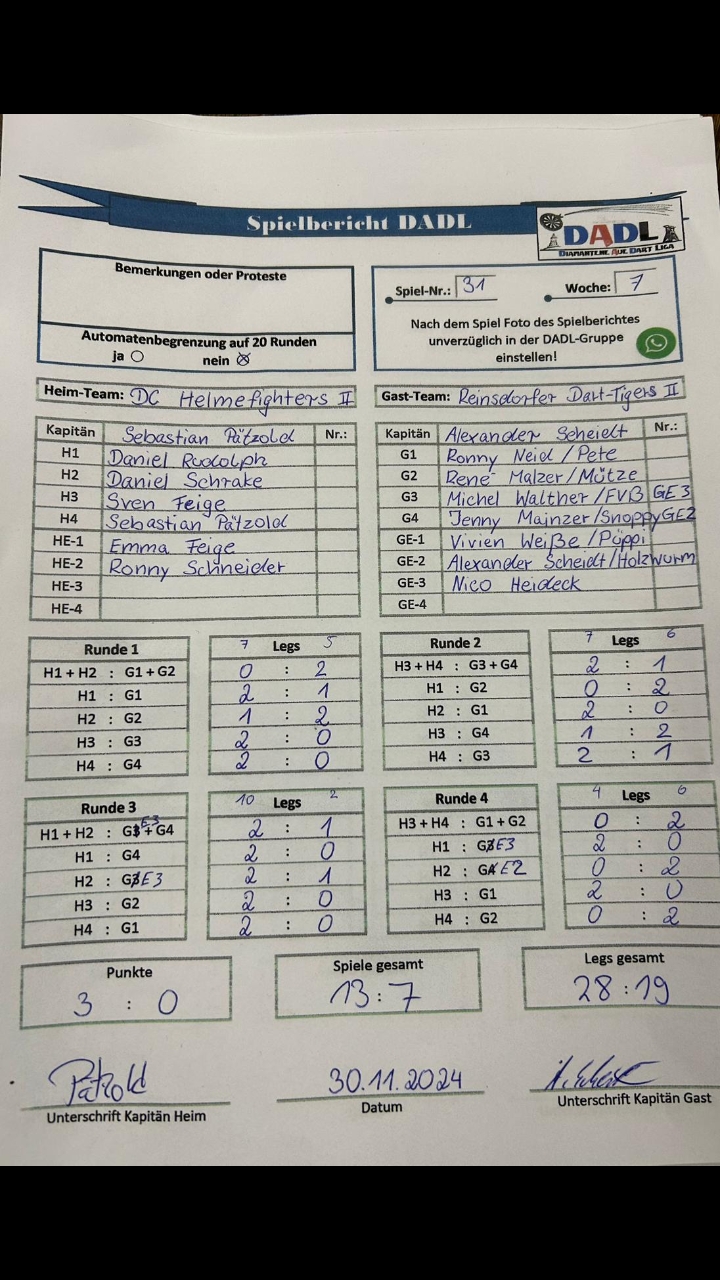 Spielbericht DADL
DADL
DIAMANTENE AUE DART LIGA
Bemerkungen oder Proteste
Automatenbegrenzung auf 20 Runden
ja nein
Spiel-Nr.: 31 Woche: 7
Nach dem Spiel Foto des Spielberichtes
unverzüglich in der DADL-Gruppe
einstellen!
Heim-Team: DC Helmefighters II
Gast-Team: Reinsdorfer Dart-Tigers II
Kapitän Sebastian Pätzold Nr.:
H1 Daniel Rudolph
H2 Daniel Schrake
H3 Sven Feige
H4 Sebastian Pätzold
HE-1 Emma Feige
HE-2 Ronny Schneider
HE-3
HE-4
Kapitän Alexander Scheidt Nr.:
G1 Ronny Neid / Pete
G2 René Malzer / Mütze
G3 Michel Walther / FVB GE3
G4 Jenny Mainzer / Snoppy GE2
GE-1 Vivien Weiße / Püppi
GE-2 Alexander Scheidt / Holzwurm
GE-3 Nico Heideck
GE-4
Runde 1 7 Legs 5
H1 + H2 : G1 + G2 0 : 2
H1 : G1 2 : 1
H2 : G2 1 : 2
H3 : G3 2 : 0
H4 : G4 2 : 0
Runde 2 7 Legs 6
H3 + H4 : G3 + G4 2 : 1
H1 : G2 0 : 2
H2 : G1 2 : 0
H3 : G4 1 : 2
H4 : G3 2 : 1
Runde 3 10 Legs 2
H1 + H2 : G3 E3 + G4 2 : 1
H1 : G4 2 : 0
H2 : G3 E3 2 : 1
H3 : G2 2 : 0
H4 : G1 2 : 0
Runde 4 4 Legs 6
H3 + H4 : G1 + G2 0 : 2
H1 : G3 E3 2 : 0
H2 : G4 E2 0 : 2
H3 : G1 2 : 0
H4 : G2 0 : 2
Punkte
3 : 0
Spiele gesamt
13 : 7
Legs gesamt
28 : 19
Pätzold
Unterschrift Kapitän Heim
30.11.2024
Datum
Unterschrift Kapitän Gast